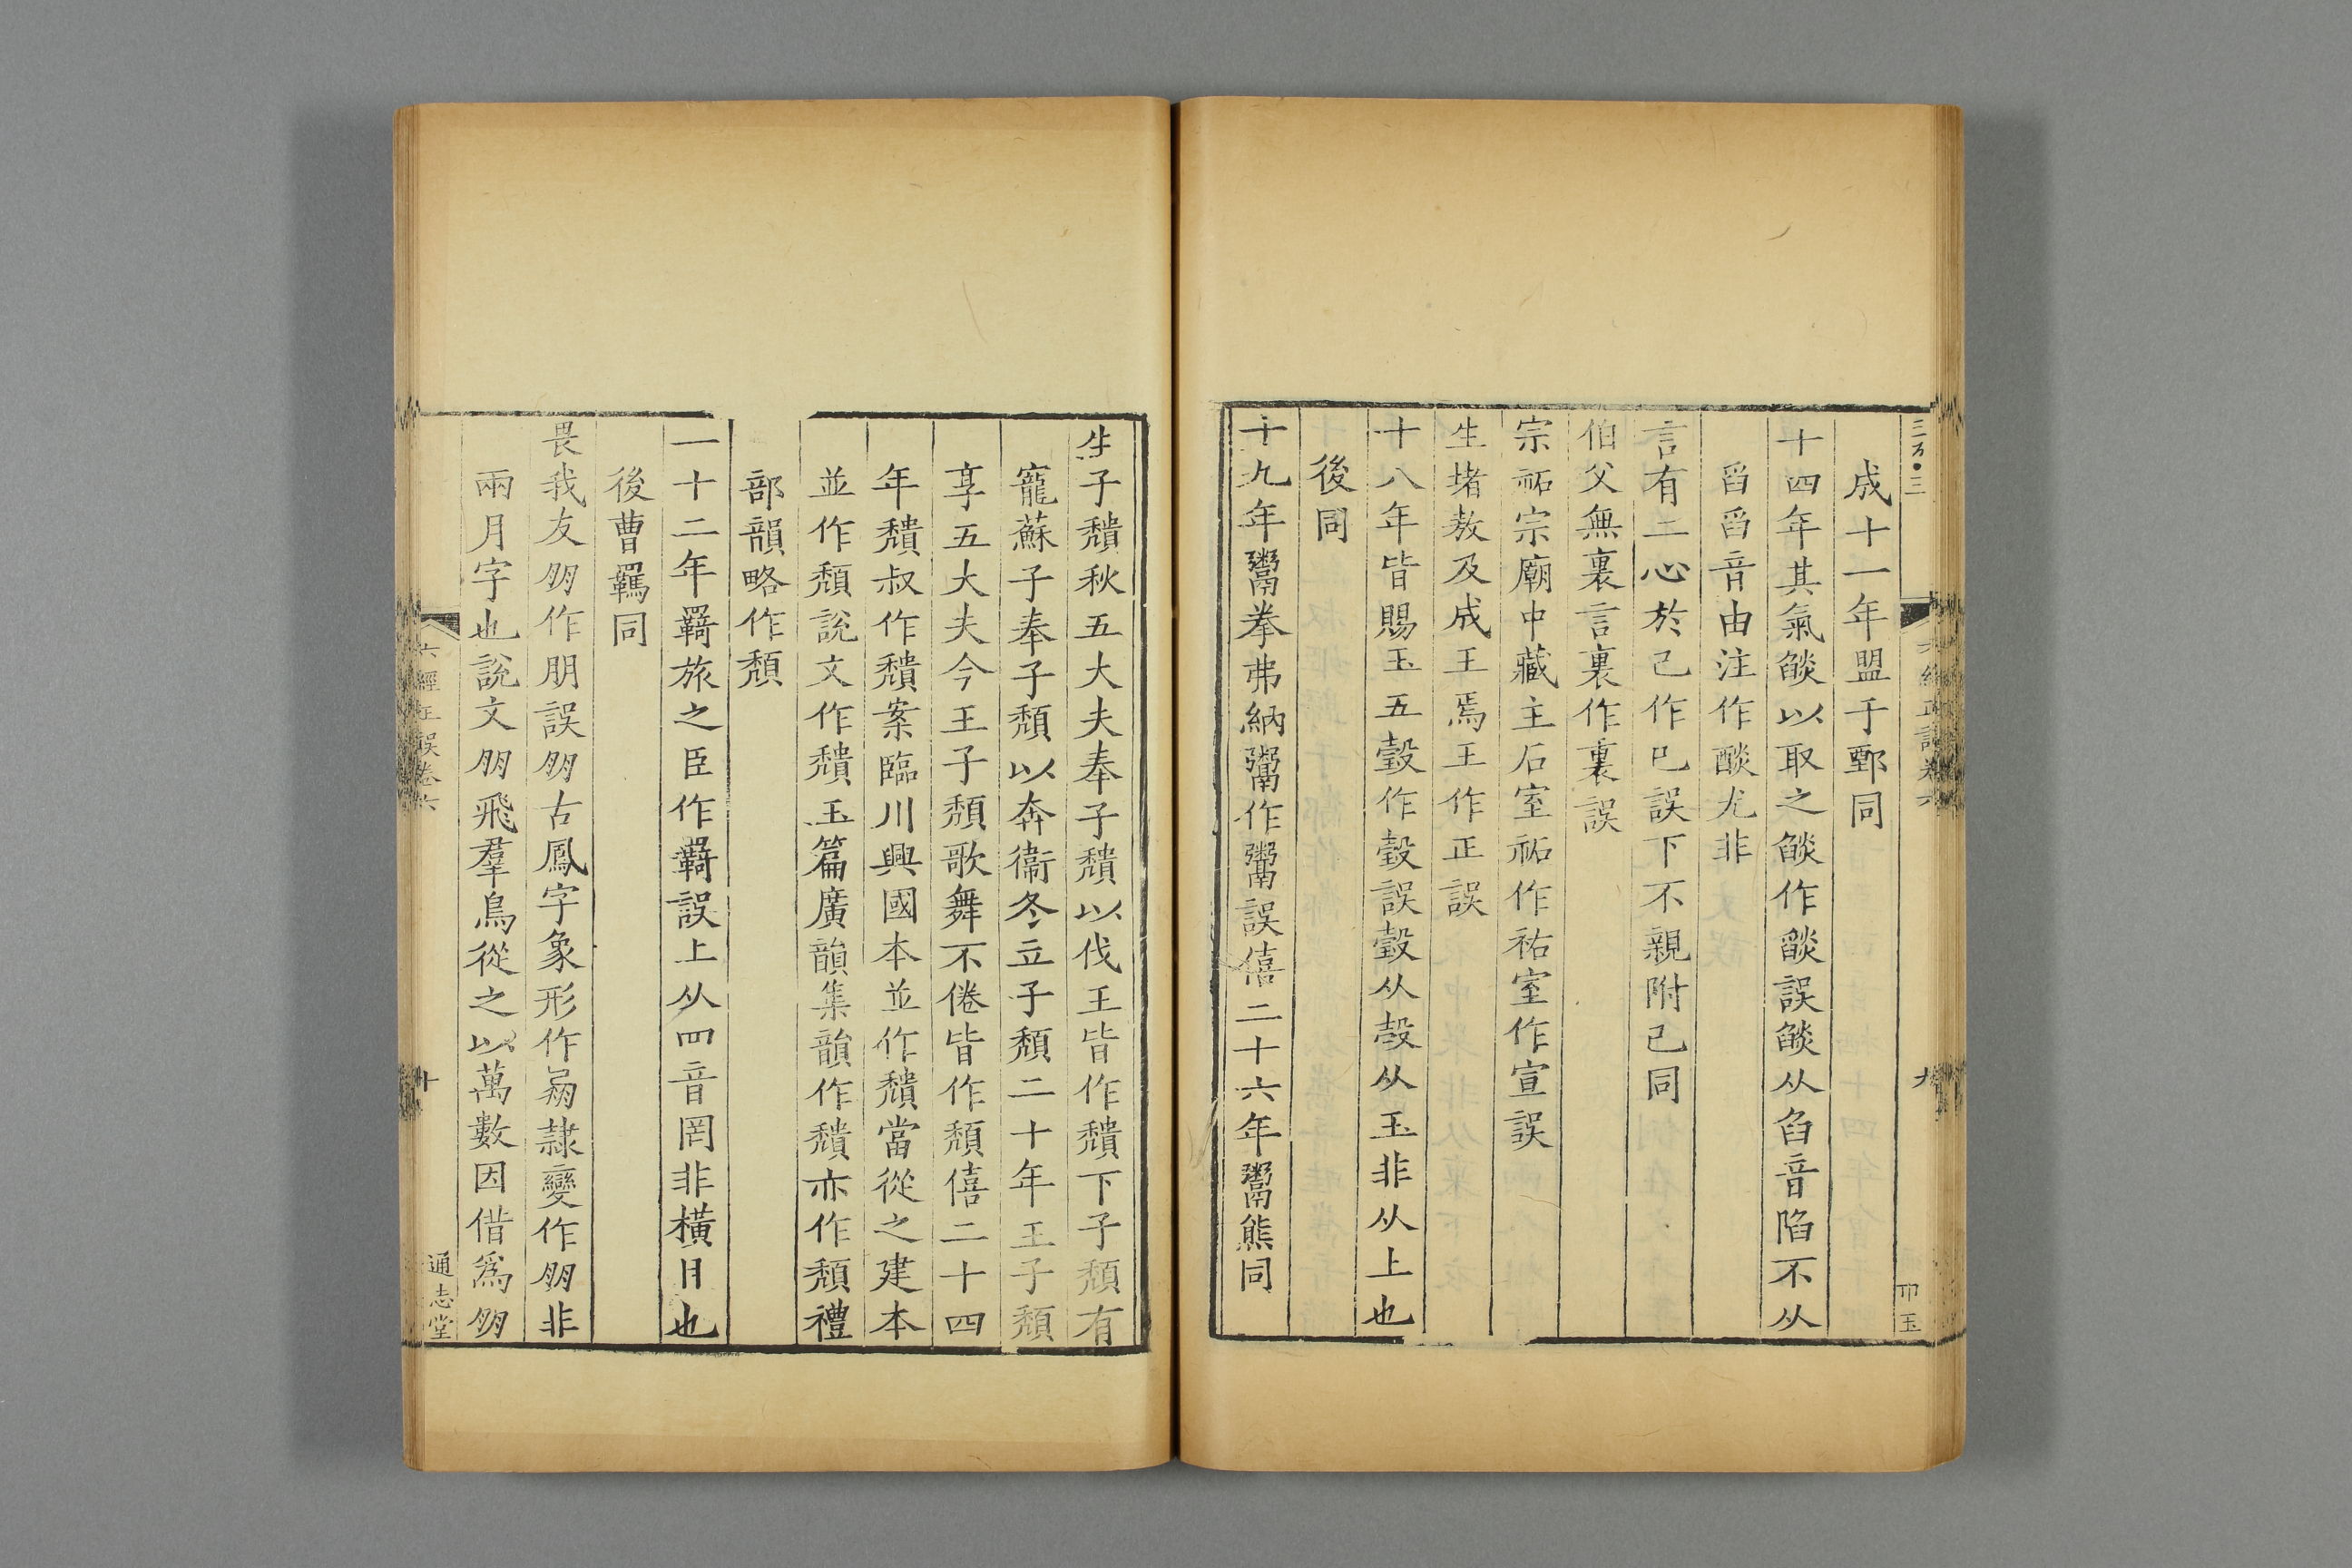 成十一年盟于鄄同
十四年其氣燄以取之燄作𦦨誤燄从臽音陷不从
舀舀音由注作酸尤非
言有二心於己作巳誤下不親附己同
伯父無裏言裏作裏誤
宗祏宗廟中藏主石室祏作祐室作宣誤
生堵敖及成王焉王作正誤
十八年皆賜玉五瑴作瑴誤瑴从㱿从玉非从上也
後同
十九年鬻拳弗納鬻作鬻誤僖二十六年鬻熊同
六經正誤卷六
九
生子穨秋五大夫奉子穨以伐王皆作穨下子頽有
寵蘇子奉子頽以奔衞冬立子頽二十年王子頽
享五大夫今王子頽歌舞不倦皆作頽僖二十四
年穨叔作穨案臨川興國本並作穨當從之建本
並作頽說文作穨玉篇廣韻集韻作穨亦作頽禮
部韻略作頽
二十二年羇旅之臣作羇誤上从四音罔非橫目也
後曹羈同
畏我友朋作朋誤朋古鳳字象形作𦐑隷變作朋非
兩月字也說文朋飛羣鳥從之以萬數因借爲朋
六經正誤卷六
十
通志堂